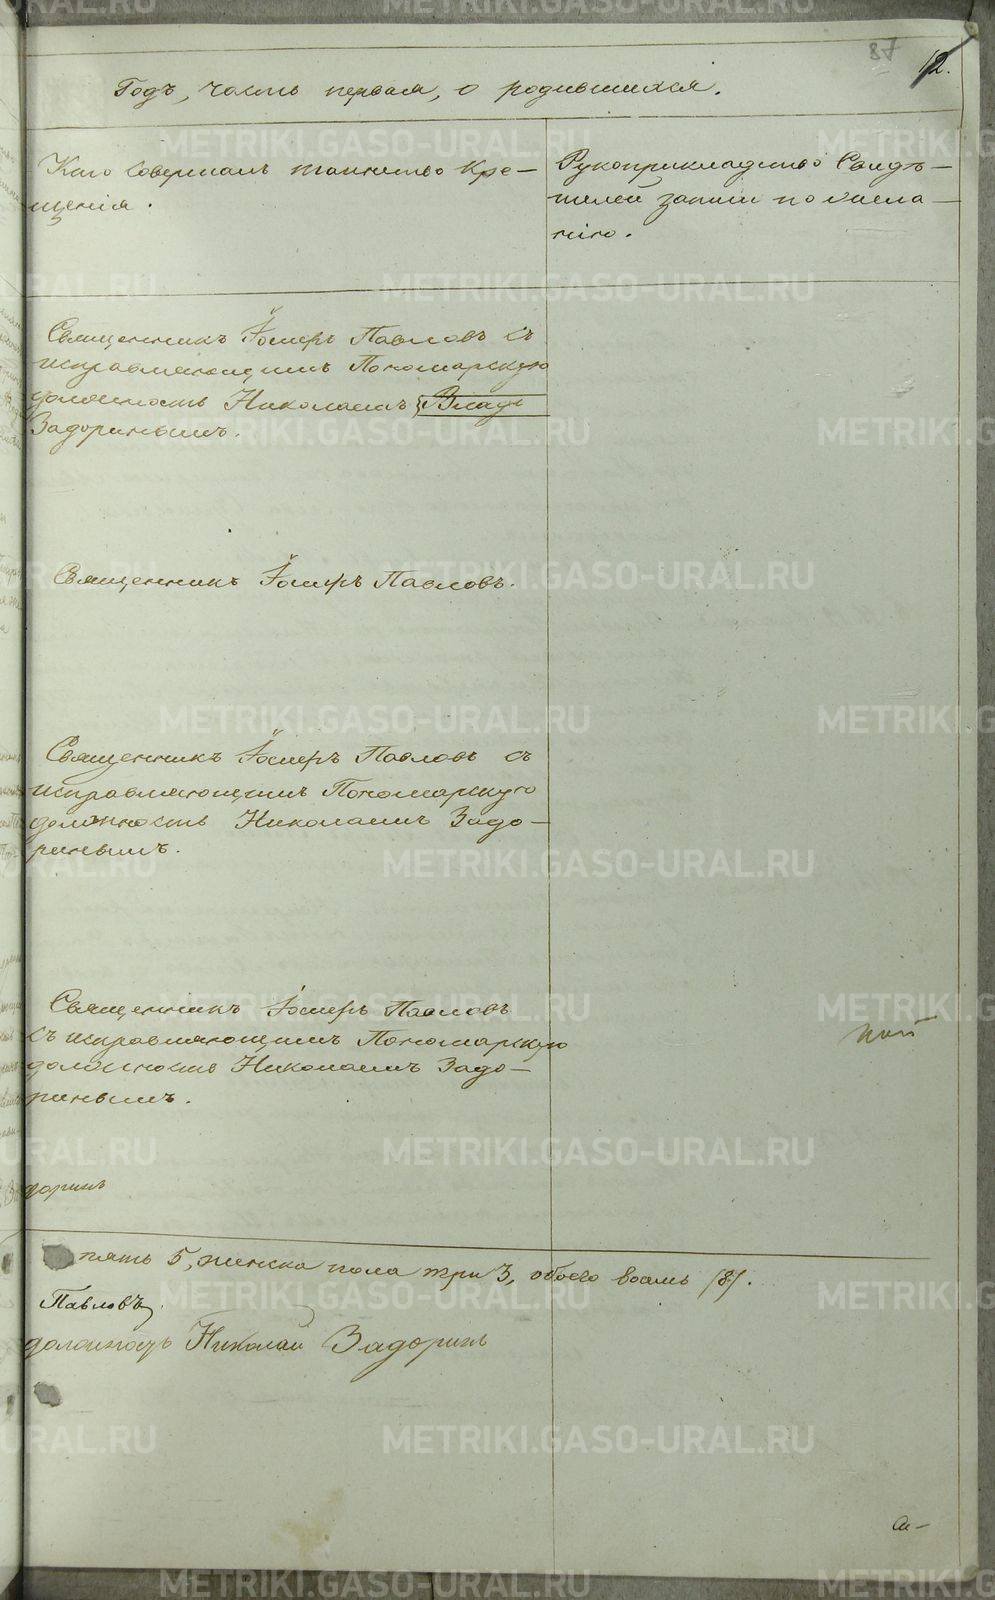 87
12.
Годъ, часть первая, о родившихся.
Кто совершалъ таинство кре-
щенія.
Рукоприкладство свидѣ-
телей записи по жела-
нію.
Священникъ Іосифъ Павловъ съ
исправляющимъ Пономарскую
должность Николаемъ Влади
Задоринымъ.
Священникъ Іосифъ Павловъ.
Священникъ Іосифъ Павловъ съ
исправляющимъ Пономарскую
должность Николаемъ Задо-
ринымъ.
Священникъ Іосифъ Павловъ
съ исправляющимъ Пономарскую
должность Николаемъ Задо-
ринымъ.
доринъ
пять 5, женска пола три 3, обоего восемь /8/.
Павловъ.
должность Николай Задоринъ
METRIKI.GASO-URAL.RU